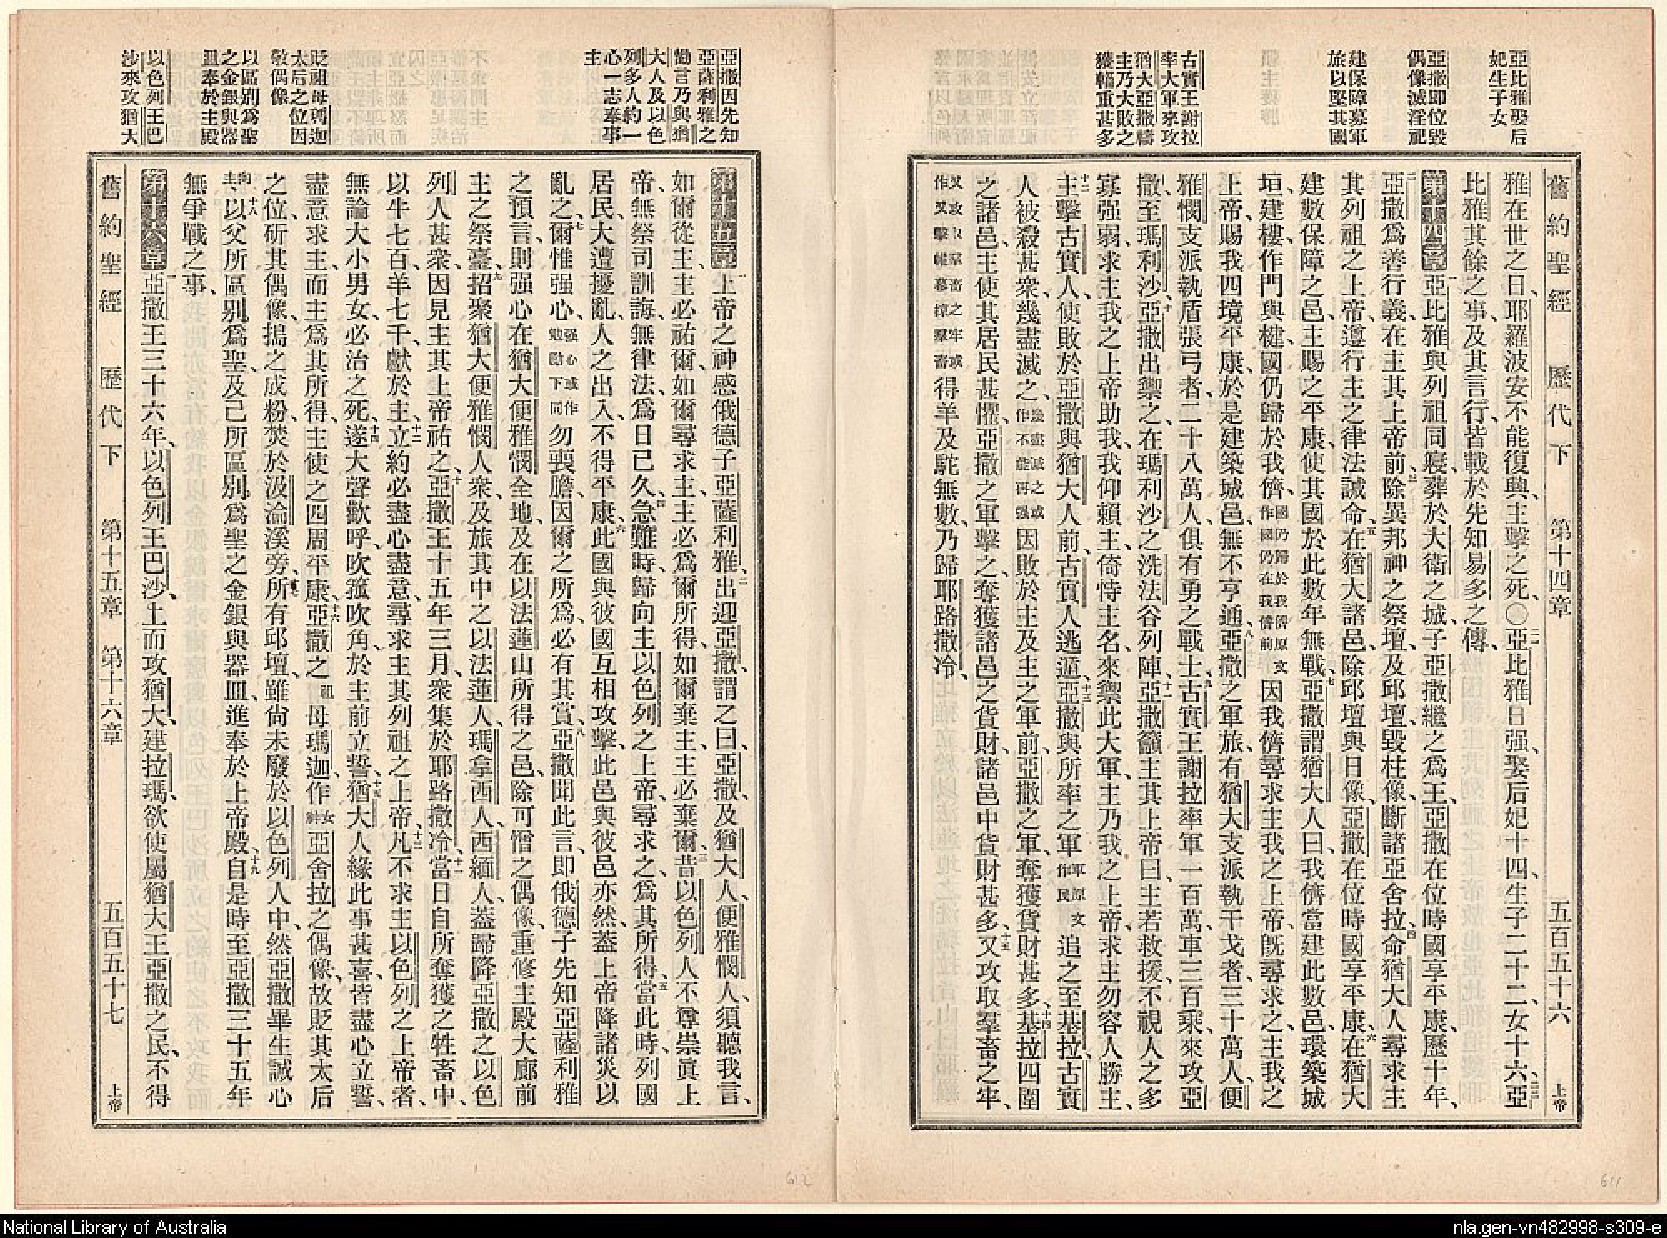 亞比雅娶后
妃生子女
亞撒卽位毀
偶像滅淫祀
建保障募軍
旅以堅其國
古實王謝拉
率大軍來攻
猶大亞撒禱
主乃大敗之
獲輜重甚多
舊約聖經 歷代下 第十四章 五百五十六 上帝
雅在世之日、耶羅波安不能復興、主擊之死、○亞比雅日强、娶后妃十四、生子二十二、女十六、亞
比雅其餘之事、及其言行、皆載於先知易多之傳、
第十四章 亞比雅與列祖同寢、葬於大衛之城、子亞撒繼之爲王、亞撒在位時、國享平康、歷十年、
亞撒爲善行義、在主其上帝前、除異邦神之祭壇、及邱壇、毀柱像、斷諸亞舍拉、命猶大人尋求主
其列祖之上帝、遵行主之律法誡命、在猶大諸邑、除邱壇與日像、亞撒在位時、國享平康、在猶大
建數保障之邑、主賜之平康、使其國於此數年無戰、亞撒謂猶大人曰、我儕當建此數邑、環築城
垣、建樓、作門與楗、國仍歸於我儕、國仍歸於我儕原文作國仍在我儕前 因我儕尋求主我之上帝、旣尋求之、主我之
上帝、賜我四境平康、於是建築城邑、無不亨通、亞撒之軍旅、有猶大支派執干戈者三十萬人、便
雅憫支派執盾張弓者二十八萬人、俱有勇之戰士、古實王謝拉率軍一百萬、車三百乘、來攻亞
撒、至瑪利沙、亞撒出禦之、在瑪利沙之洗法谷列陣、亞撒籲主其上帝曰、主若救援、不視人之多
寡强弱、求主我之上帝助我、我仰賴主、倚恃主名、來禦此大軍、主乃我之上帝、求主勿容人勝主、
主擊古實人、使敗於亞撒與猶大人前、古實人逃遁、亞撒與所率之軍 軍原文作民 追之至基拉、古實
人被殺甚衆、幾盡滅之、幾盡滅之或作不能再甦 因敗於主及主之軍前、亞撒之軍、奪獲貨財甚多、基拉四圍
之諸邑、主使其居民甚懼、亞撒之軍擊之、奪獲諸邑之貨財、諸邑中貨財甚多、又攻取羣畜之牢、
又攻取羣畜之牢或作又擊帷幕掠羣畜 得羊及駝無數、乃歸耶路撒冷、
亞撒因先知
亞薩利雅之
勸言乃與猶
大人及以色
列多人約一
心一志奉事
主
貶祖母瑪迦
太后之位因
敬偶像
以區别爲聖
之金銀與器
皿奉於主殿
以色列王巴
沙來攻猶大
第十五章 上帝之神感俄德子亞薩利雅、出迎亞撒、謂之曰、亞撒及猶大人、便雅憫人、須聽我言、
如爾從主、主必祐爾、如爾尋求主、主必爲爾所得、如爾棄主、主必棄爾、昔以色列人不尊崇眞上
帝、無祭司訓誨、無律法、爲日已久、急難時歸向主以色列之上帝、尋求之、爲其所得、當此時、列國
居民大遭擾亂、人之出入、不得平康、此國與彼國互相攻擊、此邑與彼邑亦然、蓋上帝降諸災以
亂之、爾惟强心、强心或作勉勵下同 勿喪膽、因爾之所爲、必有其賞、亞撒聞此言、卽俄德子先知亞薩利雅
之預言、則强心、在猶大便雅憫全地、及在以法蓮山所得之邑、除可憎之偶像、重修主殿大廊前
主之祭臺、招聚猶大便雅憫人衆、及旅其中之以法蓮人、瑪拿西人、西緬人、蓋歸降亞撒之以色
列人甚衆、因見主其上帝祐之、亞撒王十五年三月、衆集於耶路撒冷、當日自所奪獲之牲畜中、
以牛七百、羊七千、獻於主、立約必盡心盡意、尋求主其列祖之上帝、凡不求主以色列之上帝者、
無論大小男女、必治之死、遂大聲歡呼、吹箛吹角、於主前立誓、猶大人緣此事甚喜、皆盡心立誓、
盡意求主、而主爲其所得、主使之四周平康、亞撒之祖母瑪迦作女神亞舍拉之偶像、故貶其太后
之位、斫其偶像、搗之成粉、焚於汲淪溪旁、所有邱壇、雖尙未廢於以色列人中、然亞撒畢生誠心
向主、以父所區别爲聖、及己所區别爲聖之金銀與器皿、進奉於上帝殿、自是時至亞撒三十五年
無爭戰之事、
第十六章 亞撒王三十六年、以色列王巴沙、上而攻猶大、建拉瑪、欲使屬猶大王亞撒之民、不得
舊約聖經 歷代下 第十五章 第十六章 五百五十七 上帝
612
611
National Library of Australia
nla.gen-vn482998-s309-e